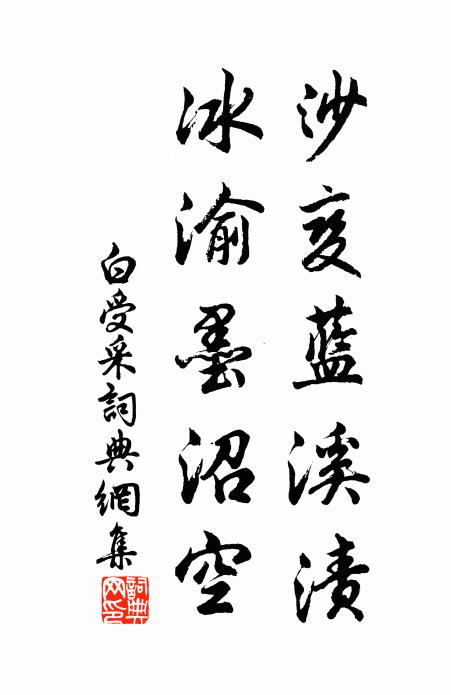 沙变藍溪漬
冰渝墨沼空
白受采詞典網集
詞典网印